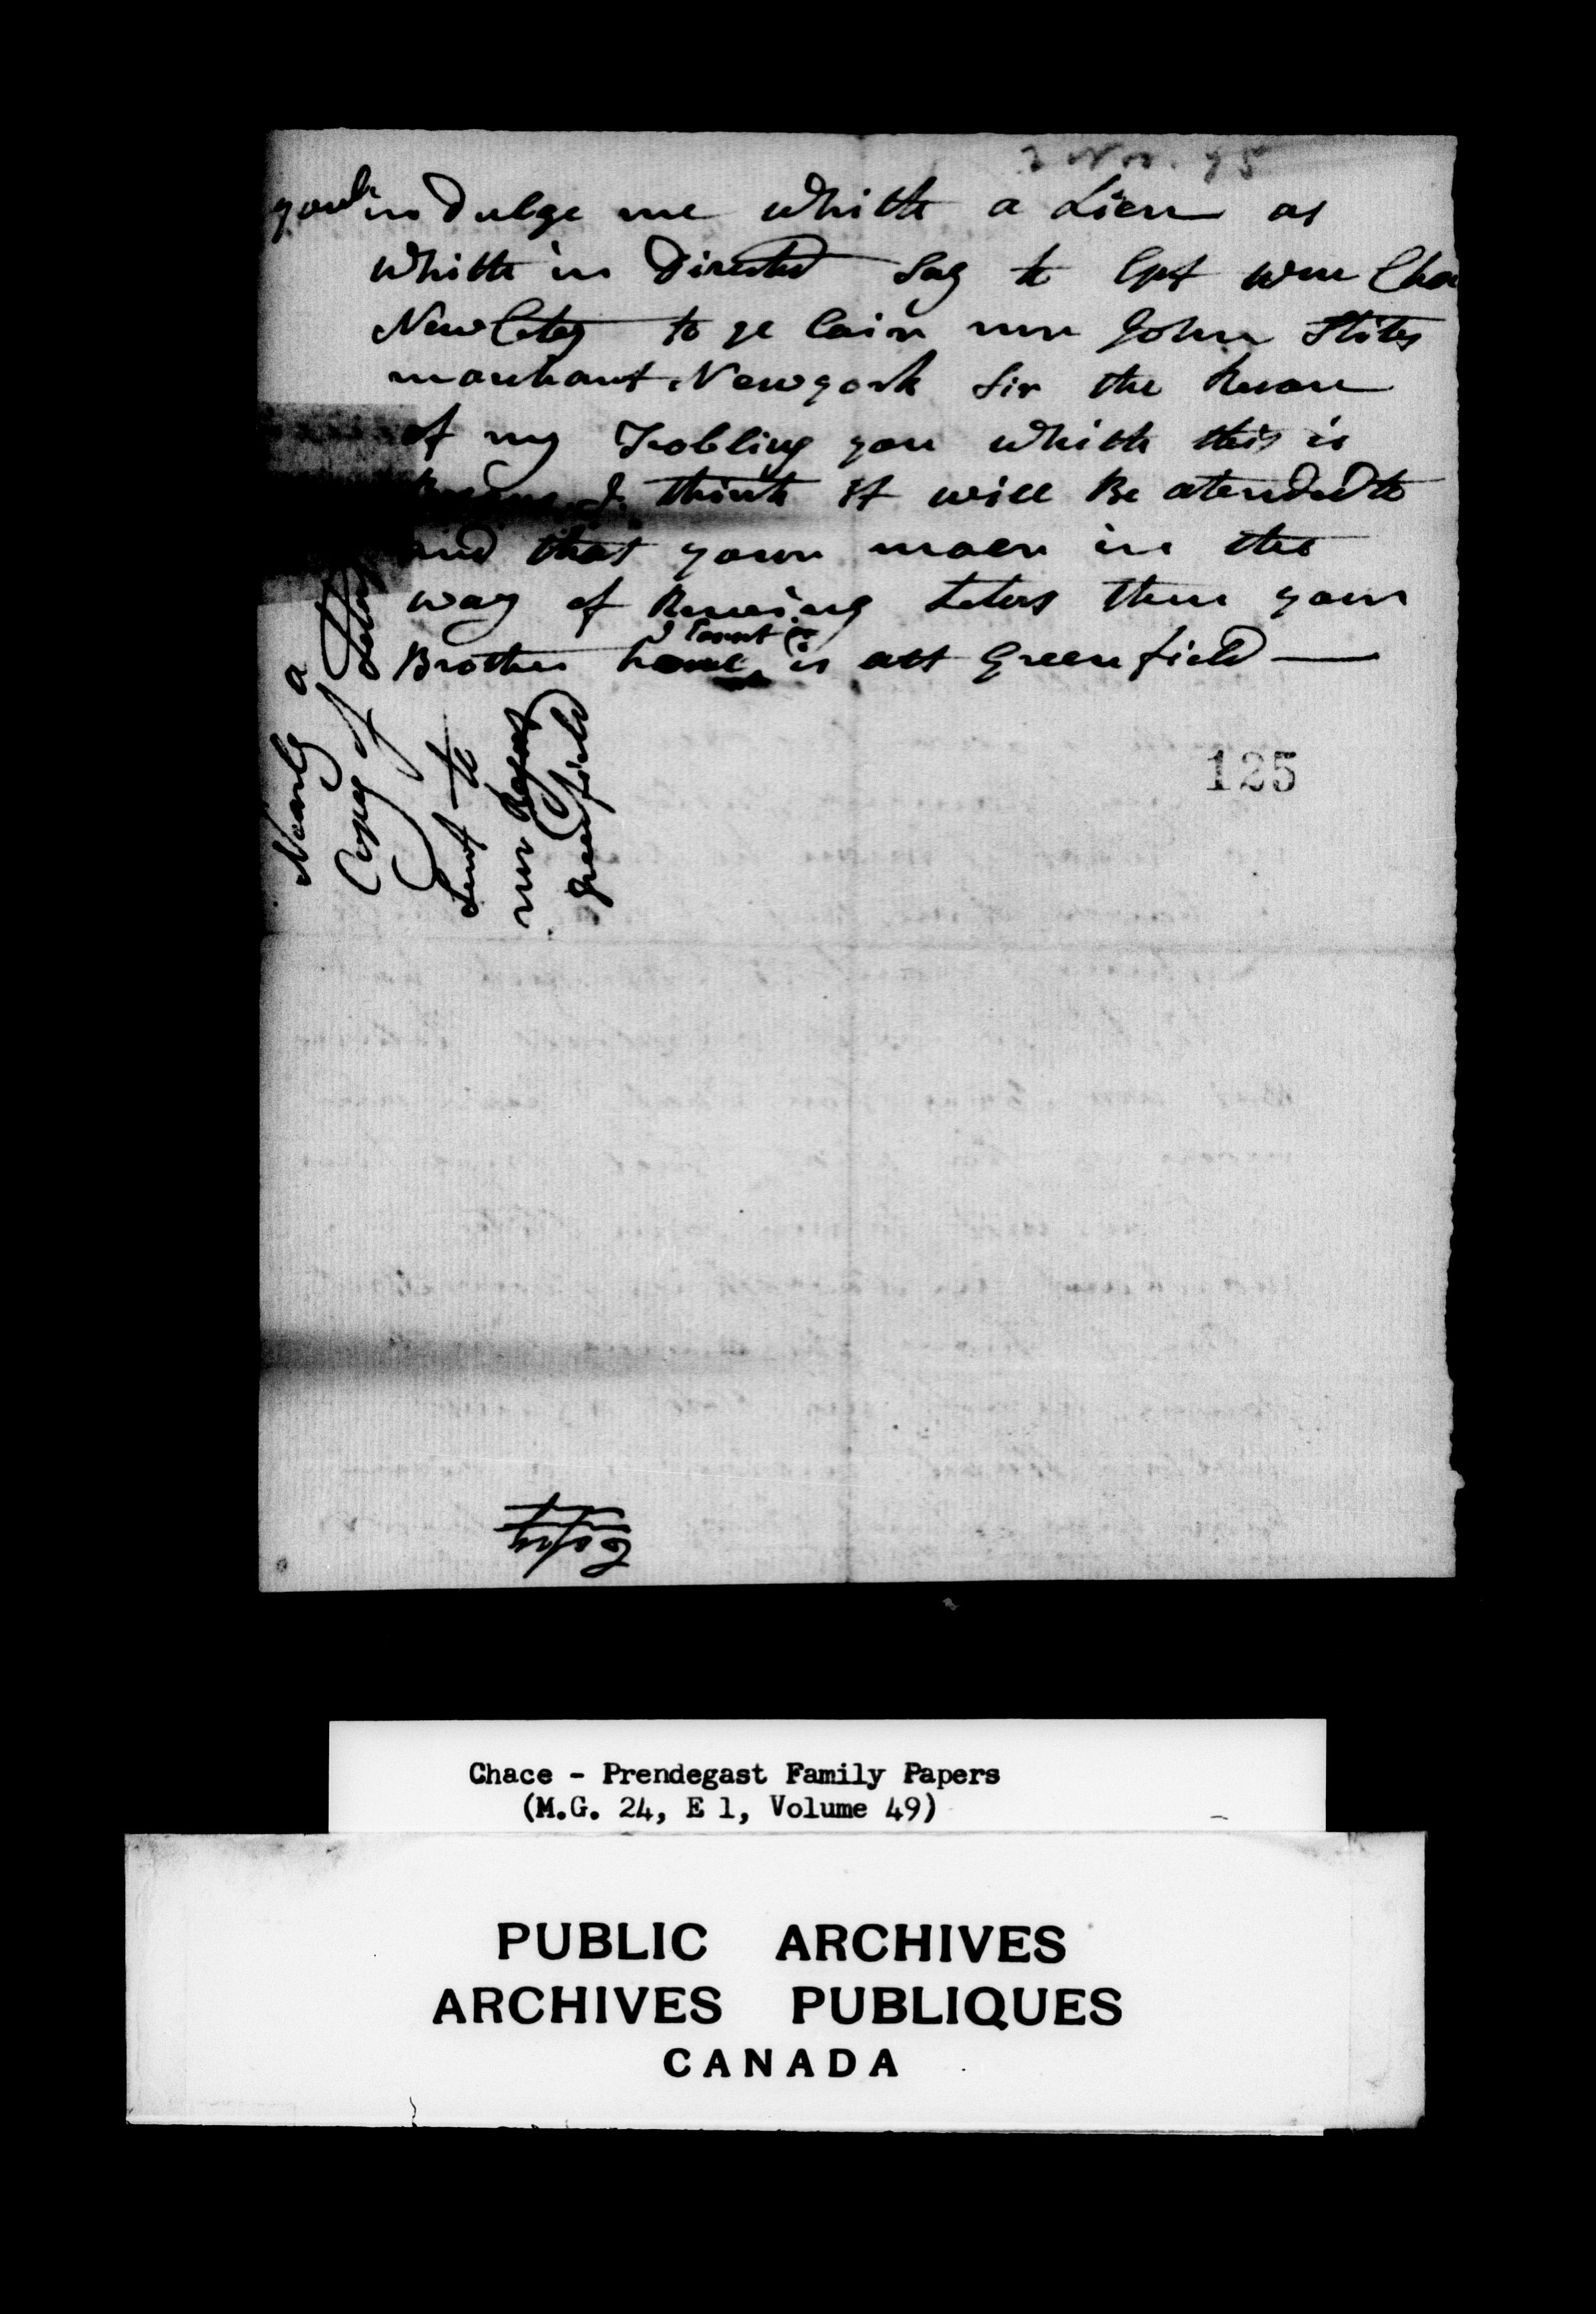 3 Nov. 95
youl indulge me whith a Lien as
whith in Directed Say to Cpt wm Cha
New City to ye Cair mr John Stites
marchant Newyork Sir the Reason
of my Trobling you whith this is
I think it will Be atended to
and that your moer in the
way of Receiving Leters then your
Brother
I Count is
is att Greenfield —
Nearly a
Copy of Leter
Sent to
mr
Greenfield
125
Chace - Prendegast Family Papers
(M.G. 24, E 1, Volume 49)
PUBLIC ARCHIVES
ARCHIVES PUBLIQUES
CANADA